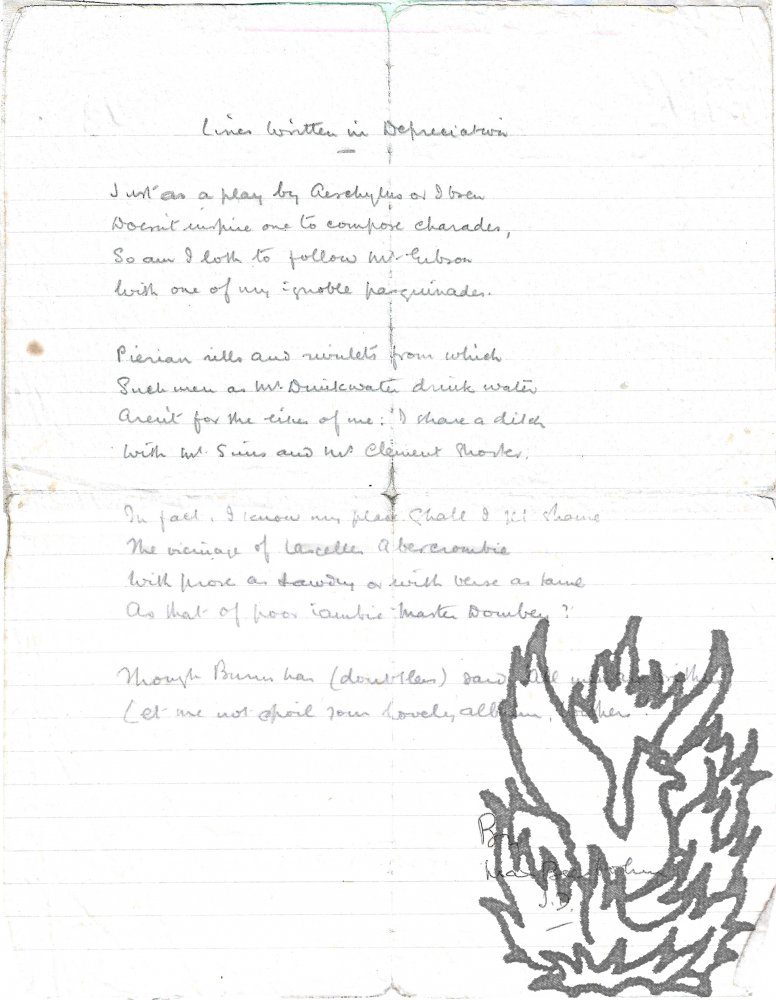 Lines Written in Depreciation
Just as a play by Aeschylus or Ibsen
Doesn't inspire one to compose charades,
So am I loth to follow Mr. Gibson
With one of my ignoble pasquinades.
Pierian rills and rivulets from which
Such men as Mr. Drinkwater drink water
Aren't for the likes of me: I share a ditch
With Mr. Sims and Mr. Clement Shorter.
In fact, I know my place. Shall I shame
The vicinage of Lascelles Abercrombie
With prose as tawdry or with verse as lame
As that of poor iambic Master Dombey?
Though Burns has (doubtless) said, All men are
Let me not spoil your lovely album,
By
Max Beerbohm
J.D.